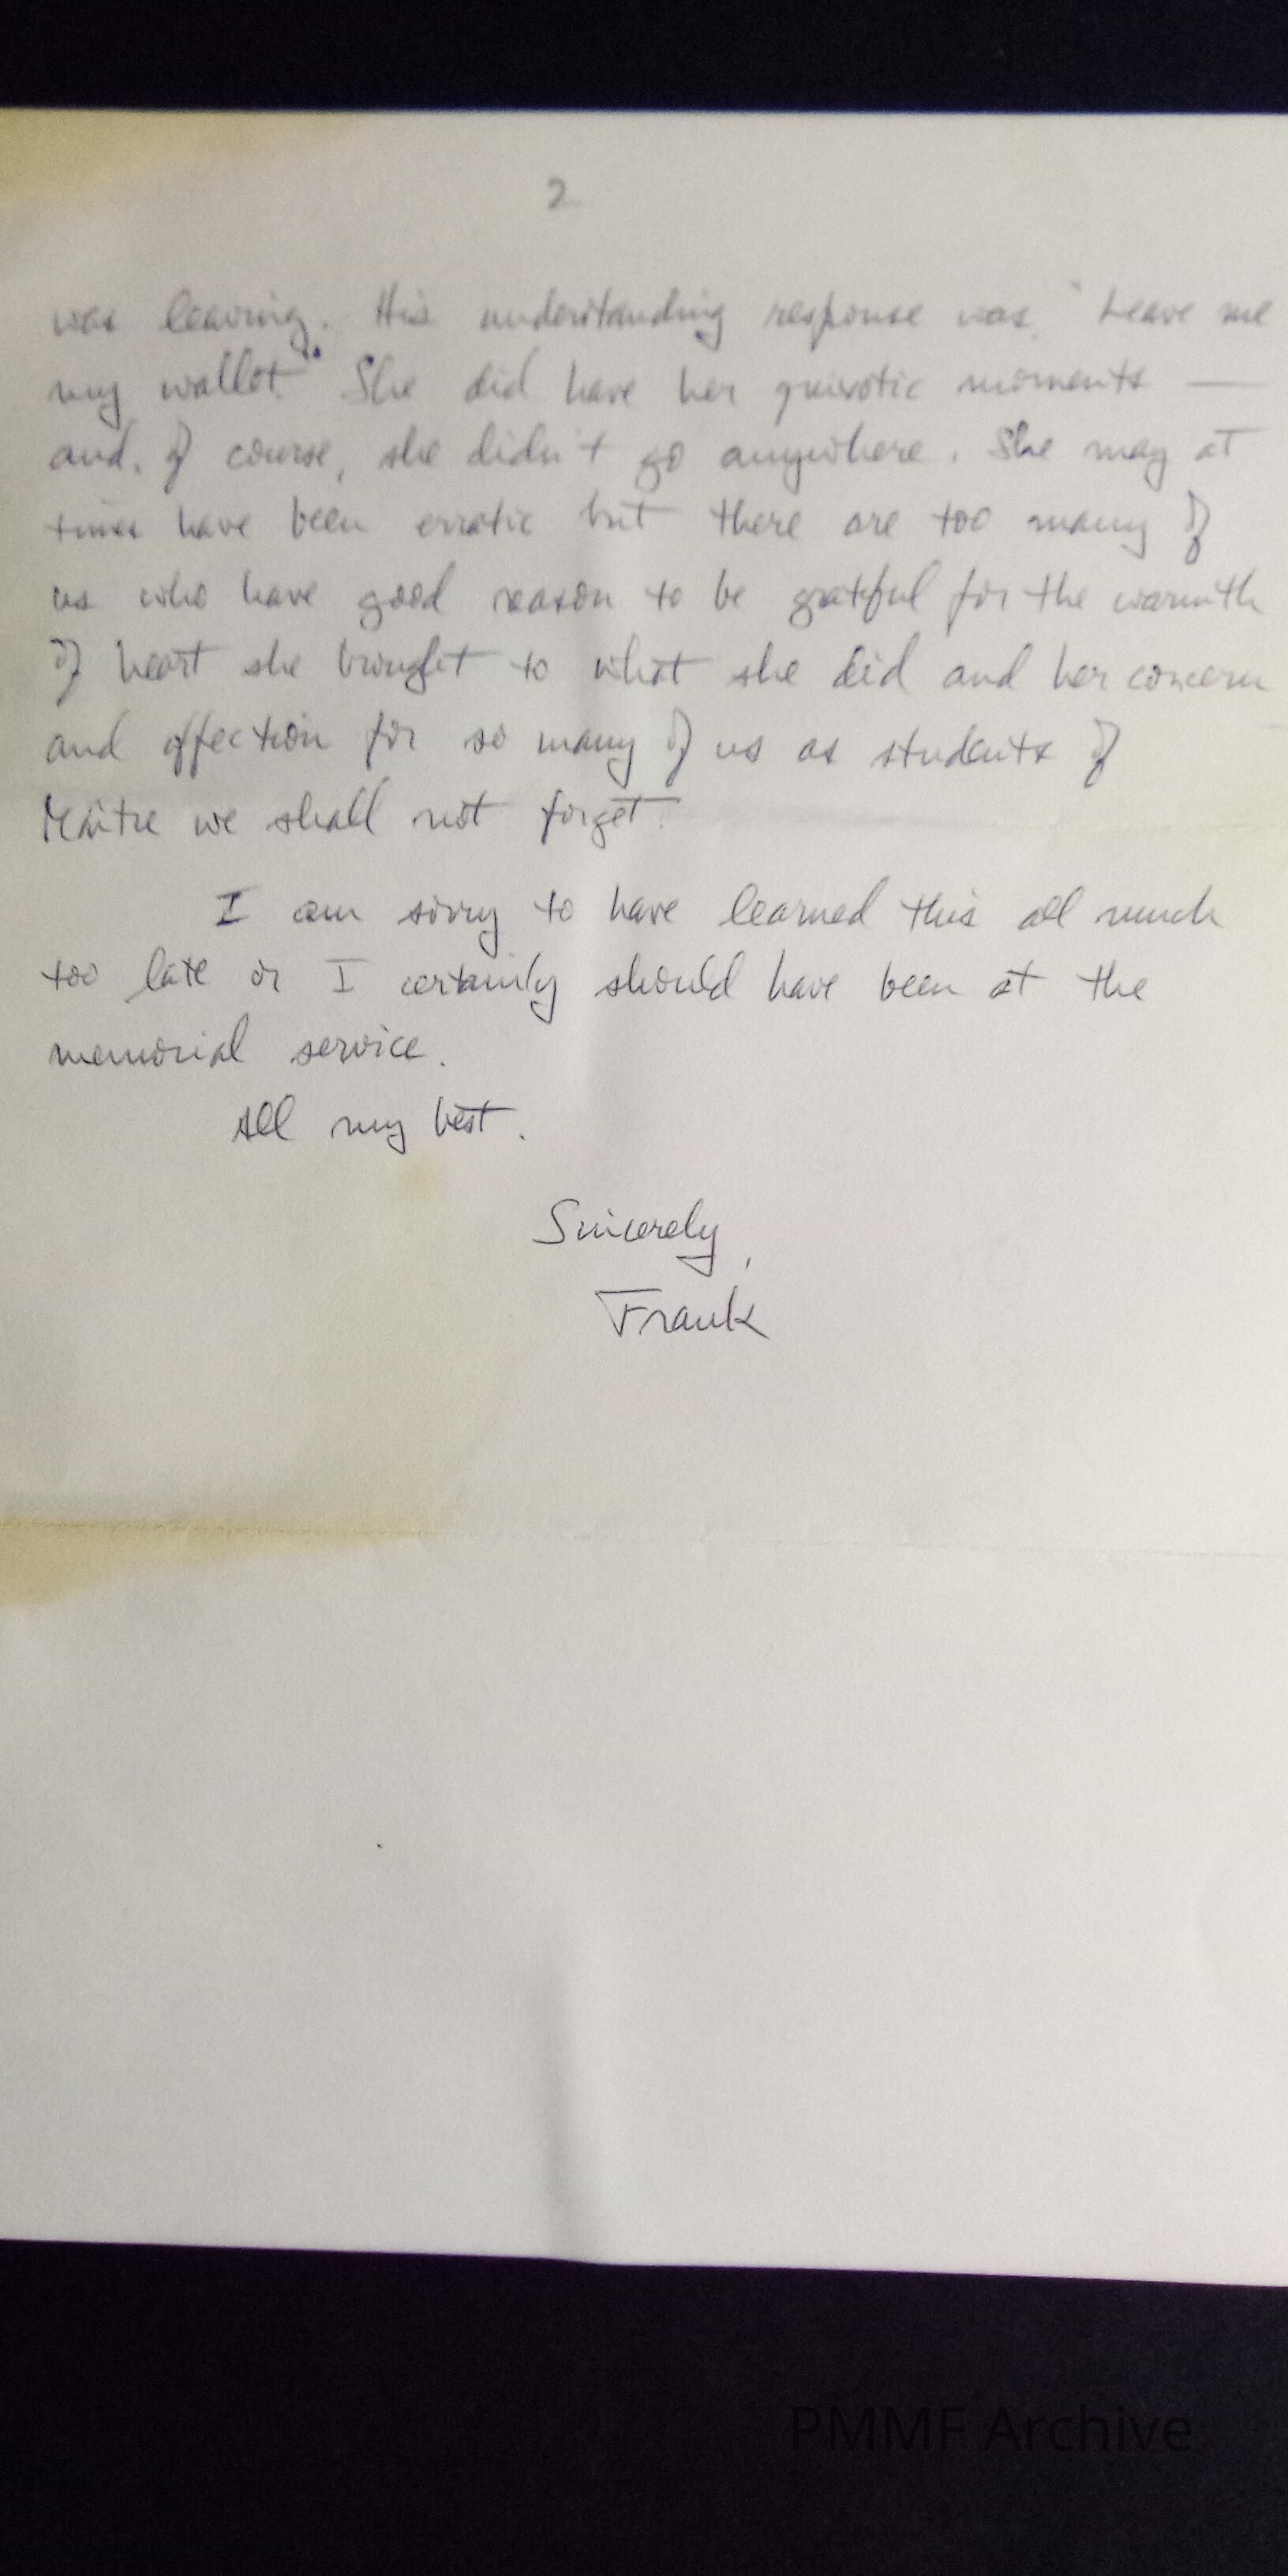 2
was leaving. His understanding response was, "Leave me
my wallet." She did have her quixotic moments —
and, of course, she didn't go anywhere. She may at
times have been erratic but there are too many of
us who have good reason to be grateful for the warmth
of heart she brought to what she did and her concern
and affection for so many of us as students of
Maître we shall not forget.
I am sorry to have learned this all much
too late or I certainly should have been at the
memorial service.
All my best.
Sincerely,
Frank
PMMF Archive